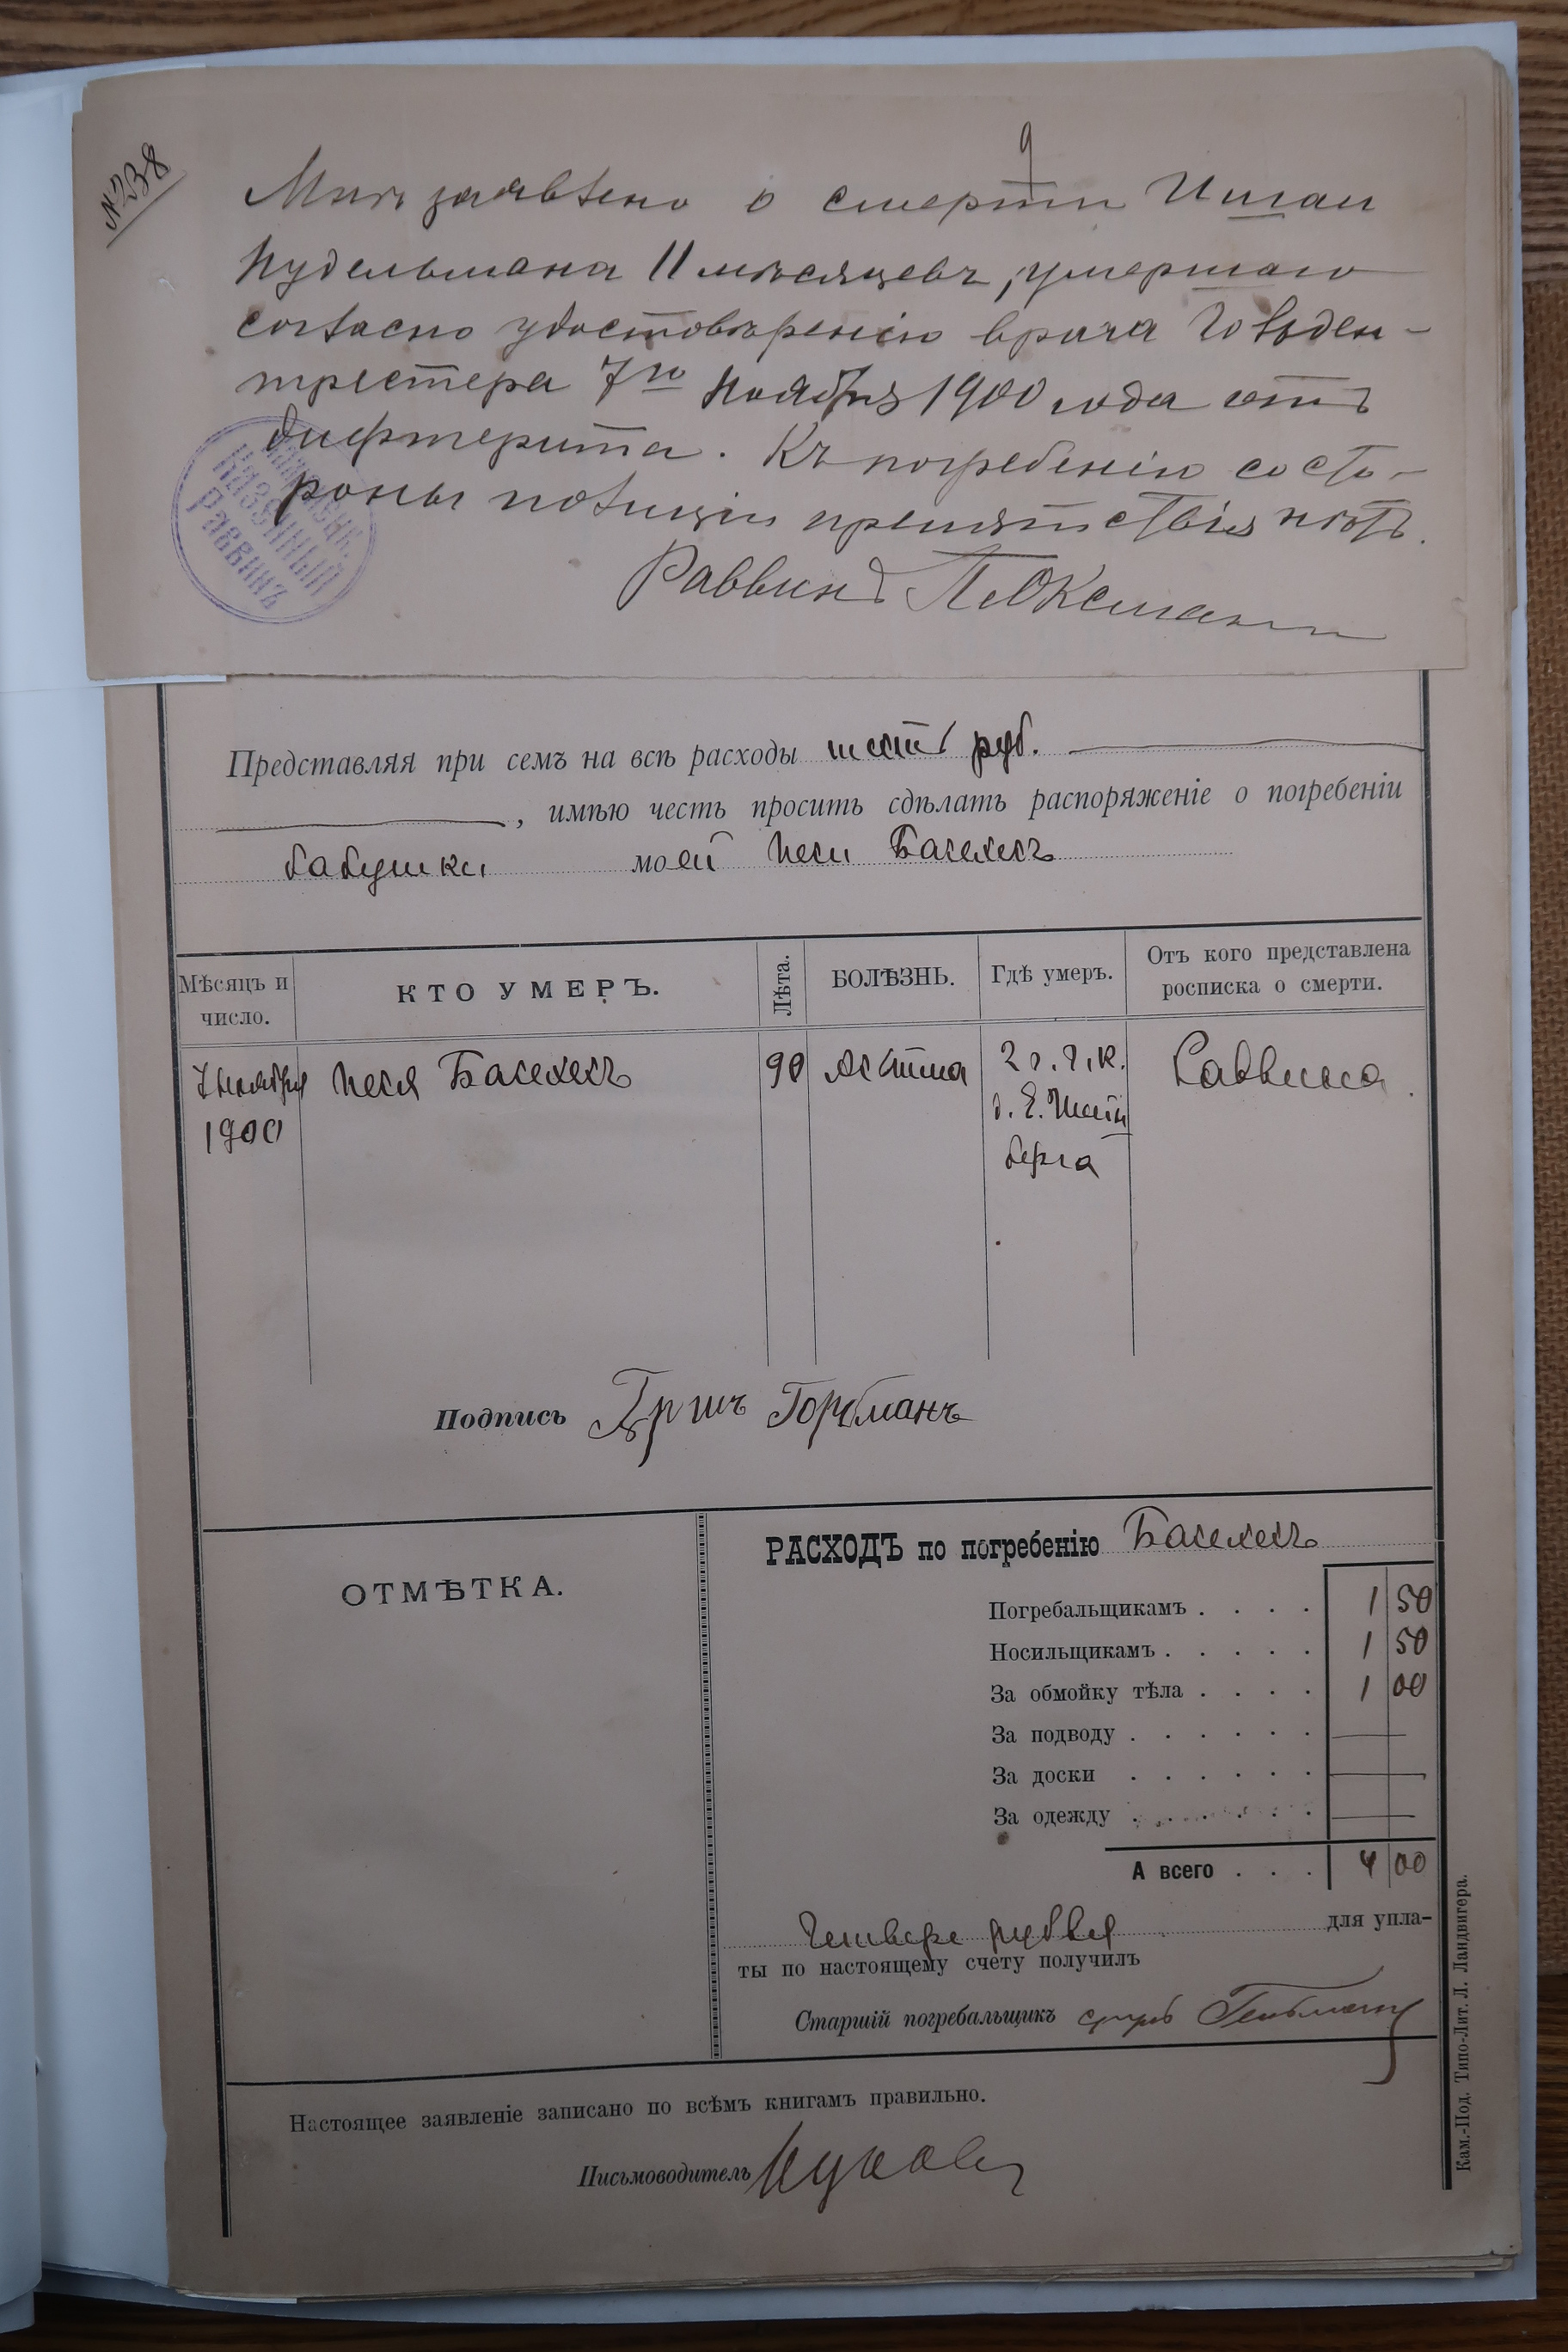 №238
9
Мнѣ заявлено о смерти Ицка
Нудельмана 11 мѣсяцевъ, умершаго
согласно удостовѣренію врача Гольден-
трестера 7го Ноября 1900 года отъ
дифтерита. Къ погребенію со сто-
роны полиціи препятствія нѣтъ.
Раввинъ П. Оксман
КАЗЕННЫЙ
РАВВИНЪ
Представляя при семъ на всѣ расходы шесть руб.
, имѣю честь просить сдѣлать распоряженіе о погребеніи
бабушки моей Песи Басехесъ
Мѣсяцъ и число. КТО УМЕРЪ. Лѣта. БОЛѢЗНЬ. Гдѣ умеръ. Отъ кого представлена росписка о смерти.
7 ноября Песя Басехесъ 90 Астма 2 о. г. к. Раввина
1900 д. Е. Штейн
берга
Подпись Гершъ Горбманъ
ОТМѢТКА.
РАСХОДЪ по погребенію Басехесъ
Погребальщикамъ . . . . 1 50
Носильщикамъ . . . . . 1 50
За обмойку тѣла . . . . 1 00
За подводу . . . . . .
За доски . . . . . .
За одежду . . . . . .
А всего . . . 4 00
Четыре рубля для упла-
ты по настоящему счету получилъ
Старшій погребальщикъ
Настоящее заявленіе записано по всѣмъ книгамъ правильно.
Письмоводитель
Кам.-Под. Типо-Лит. Л. Ландвигера.